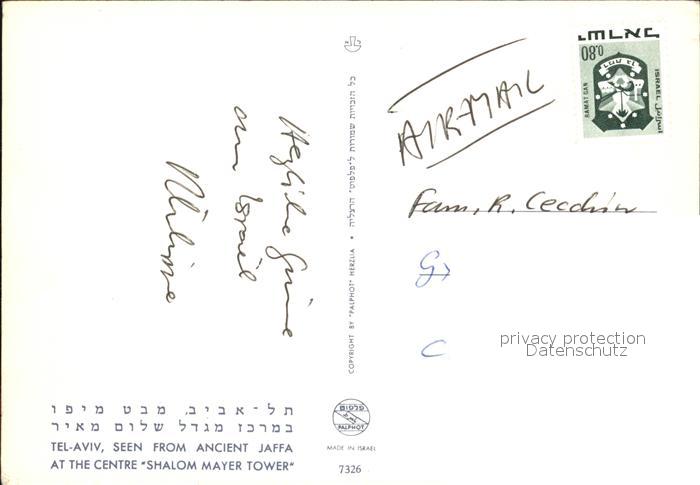 Herzliche Grüsse
aus Israel
תל-אביב, מבט מיפו
במרכז מגדל שלום מאיר
TEL-AVIV, SEEN FROM ANCIENT JAFFA
AT THE CENTRE "SHALOM MAYER TOWER"
כל הזכויות שמורות ל"פלפוט" הרצליה • COPYRIGHT BY "PALPHOT" HERZLIA
פלפוט
PALPHOT
MADE IN ISRAEL
7326
AIRMAIL
ישראל
0.80
RAMAT GAN
ISRAEL
Fam. R. Cecchin
privacy protection
Datenschutz